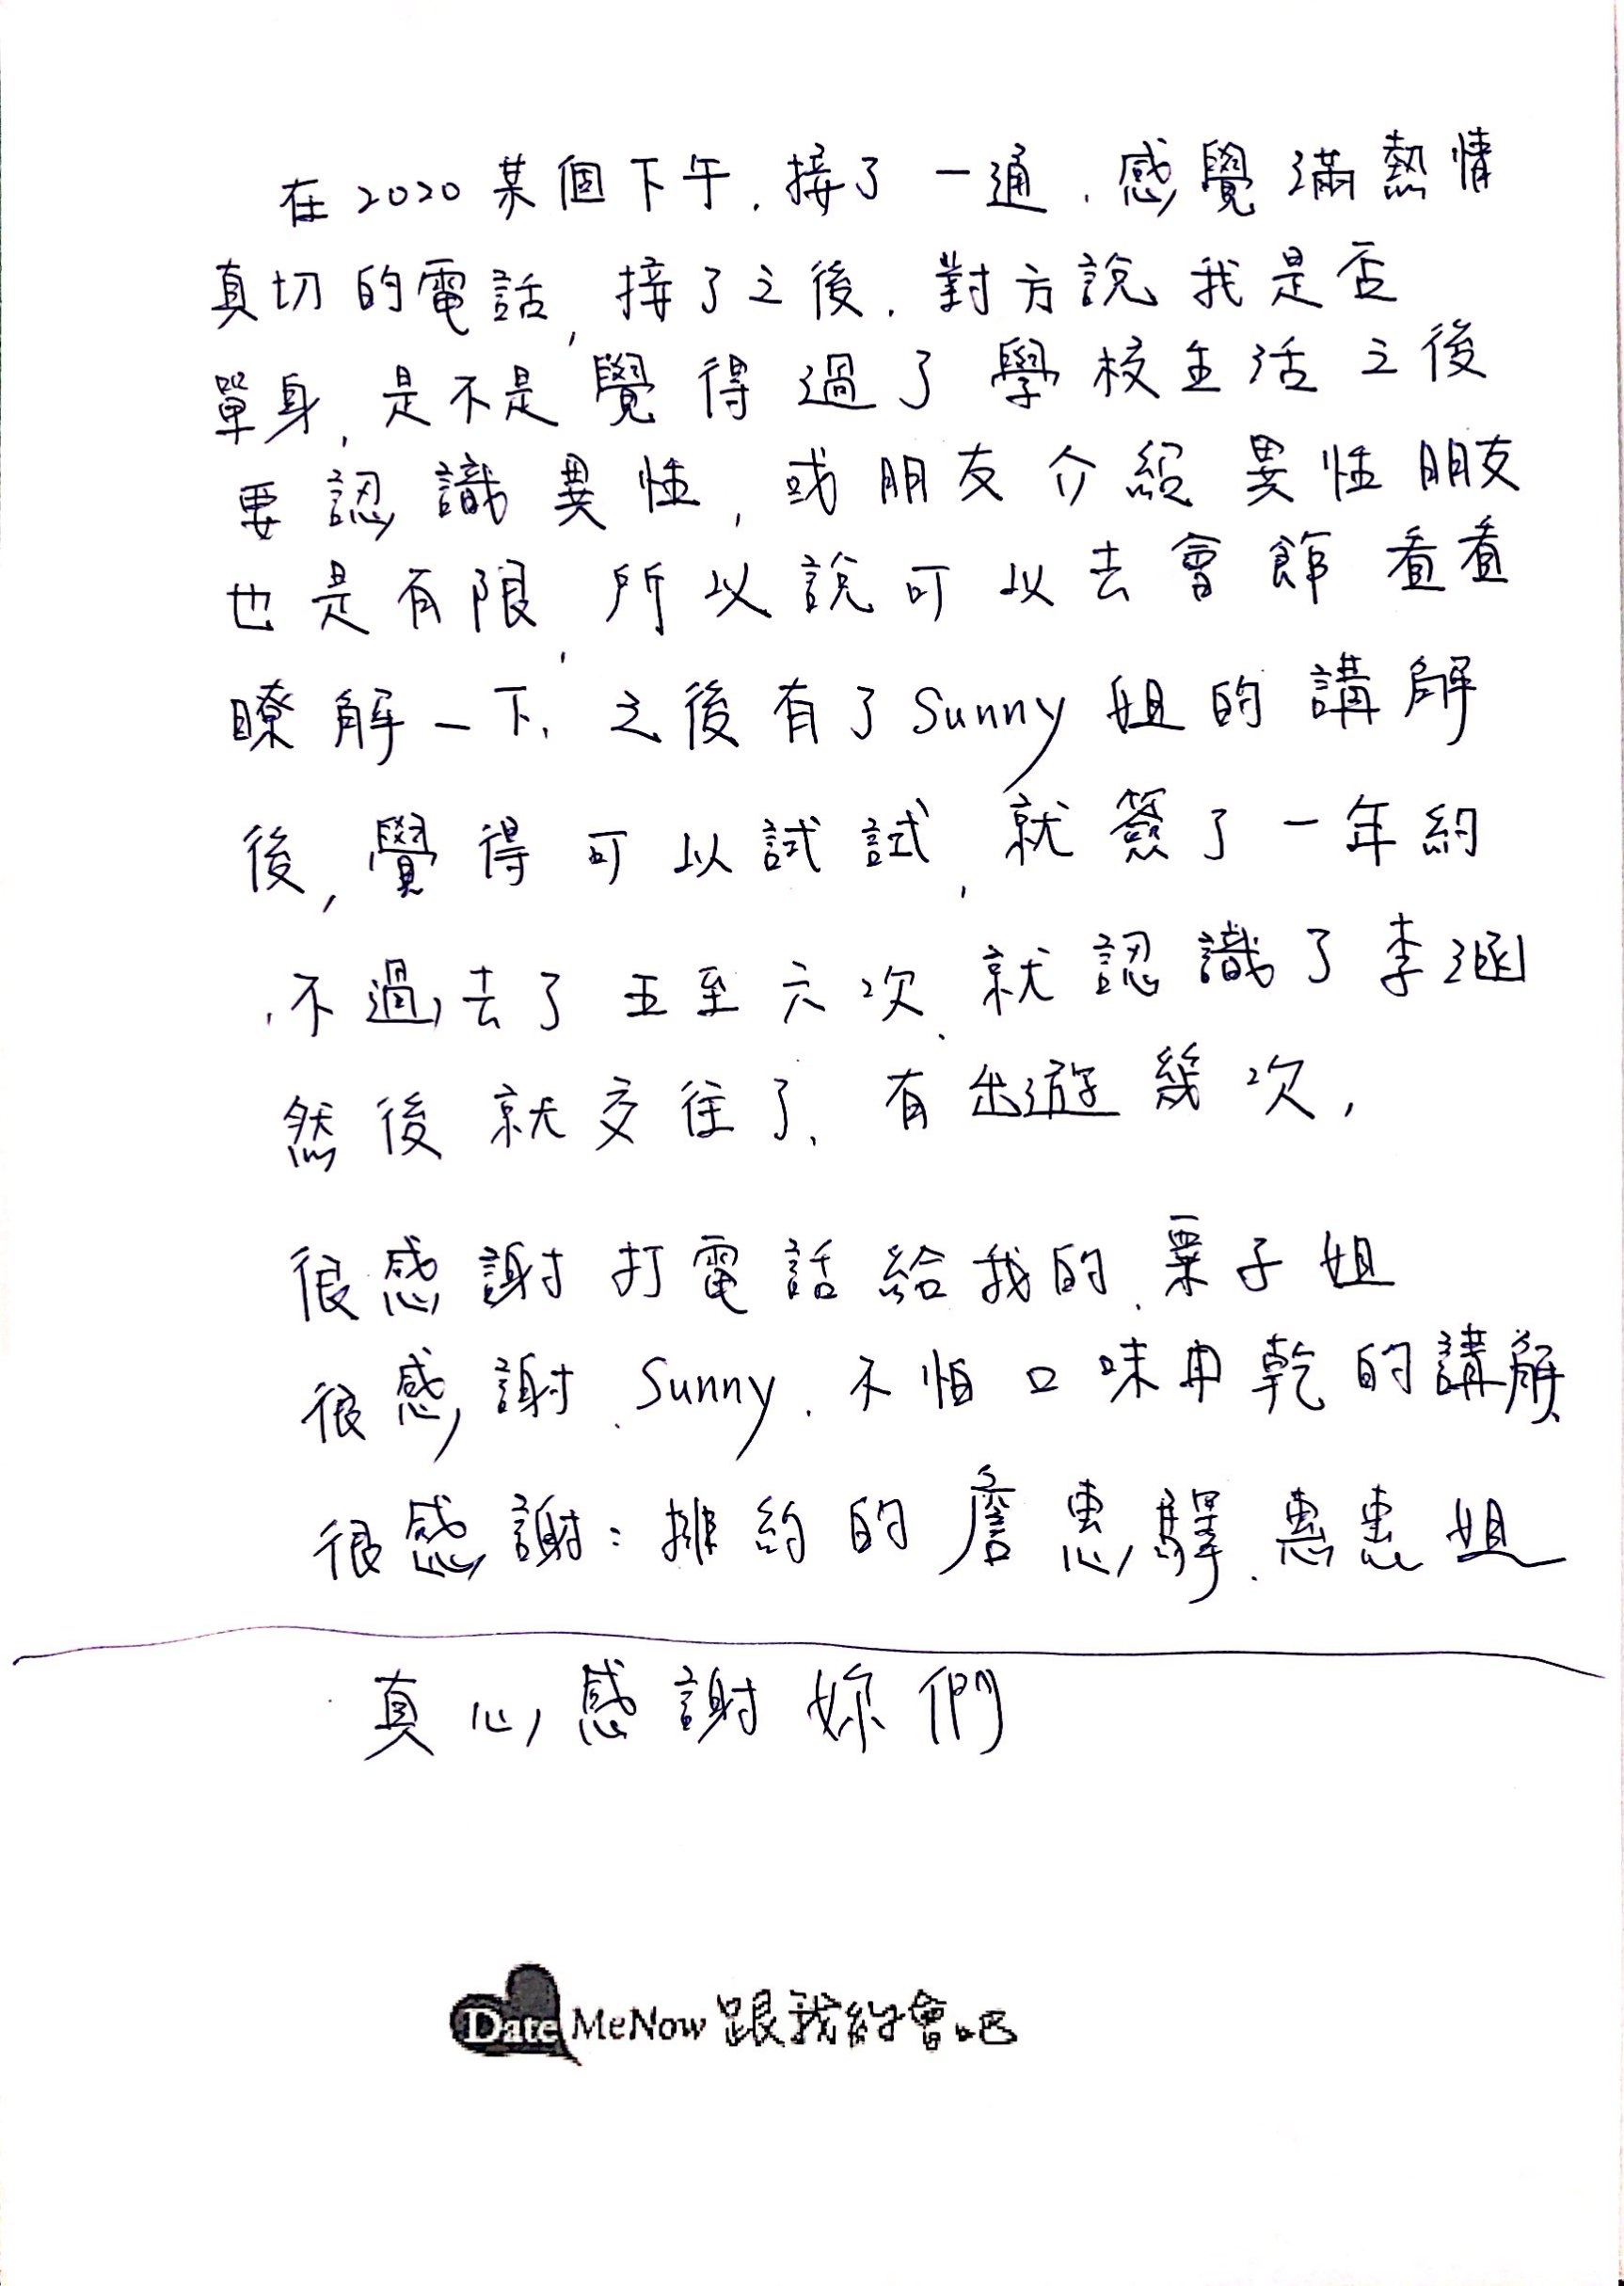 在2020某個下午,接了一通,感覺滿熱情
真切的電話,接了之後,對方說我是否
單身,是不是覺得過了學校生活之後
要認識異性,或朋友介紹異性朋友
也是有限,所以說可以去會館看看
瞭解一下,之後有了Sunny姐的講解
後,覺得可以試試,就簽了一年約
,不過去了五至六次,就認識了李涵
然後就交往了,有出遊幾次,
很感謝打電話給我的,栗子姐
很感謝,Sunny,不怕口味冉乾的講解
很感謝:排約的詹惠驛,惠惠姐
真心感謝妳們
Date MeNow 跟我約會吧